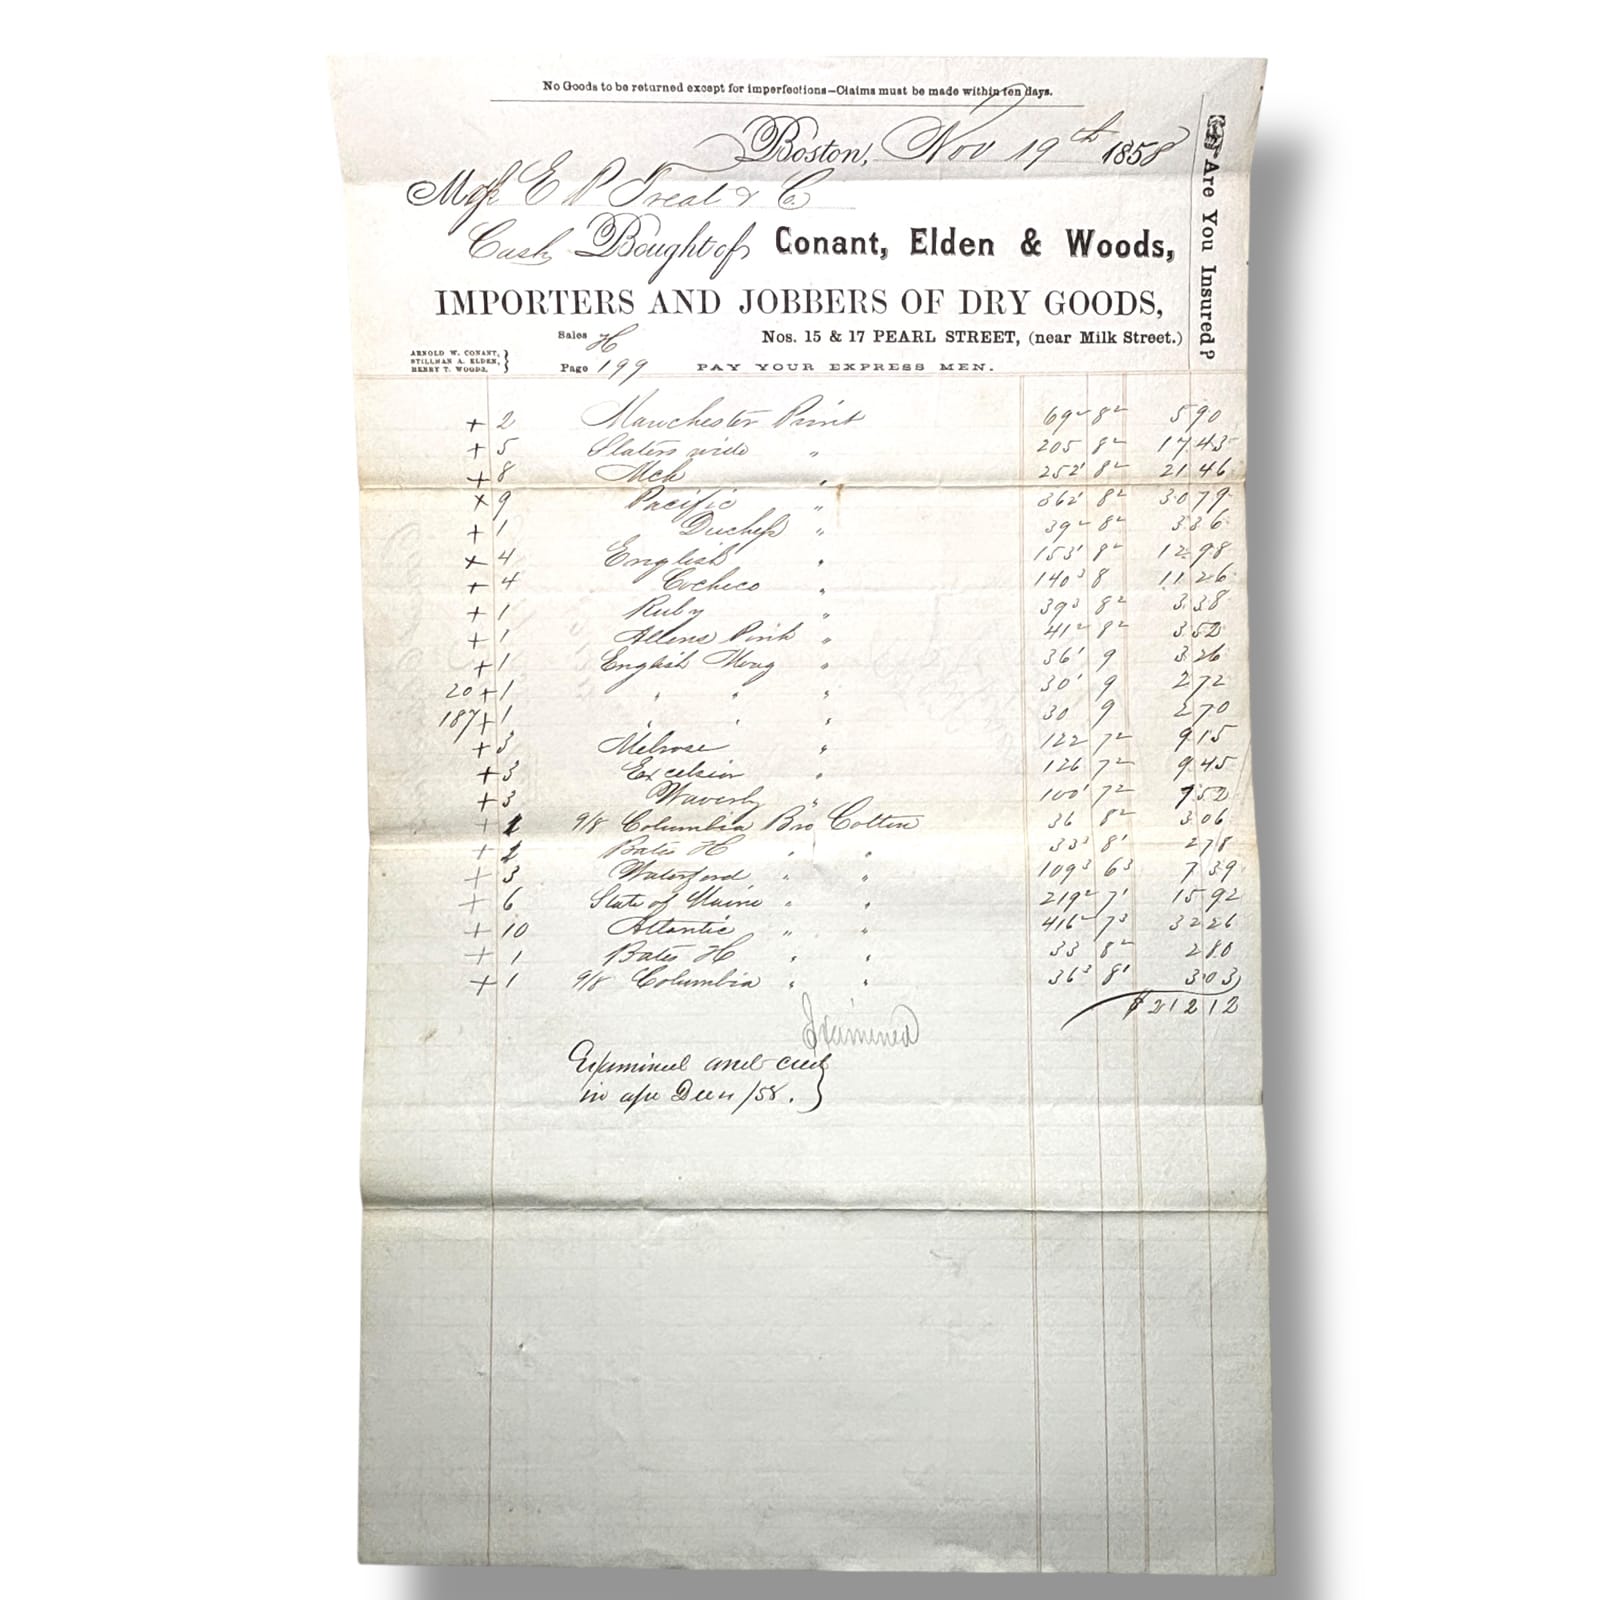 No Goods to be returned except for imperfections—Claims must be made within ten days.
Boston, Nov 19th 1858
Mess E P Treat & Co
Cash Bought of Conant, Elden & Woods,
IMPORTERS AND JOBBERS OF DRY GOODS,
Sales H Nos. 15 & 17 PEARL STREET, (near Milk Street.)
ARNOLD W. CONANT,
STILLMAN A. ELDEN,
HENRY T. WOODS.
Page 199 PAY YOUR EXPRESS MEN.
Are You Insured?
+ 2 Manchester Print 69² 8² 5 90
+ 5 Slaters wide " 205 8² 17 43
+ 8 Mch " 252' 8² 21 46
x 9 Pacific " 362' 8² 30 79
+ 1 Duchess " 39² 8² 3 36
x 4 English " 153' 8² 12 98
+ 4 Cocheco " 140³ 8 11 26
+ 1 Ruby " 39³ 8² 3 38
+ 1 Allens Pink " 41² 8² 3 52
+ 1 English " 36' 9 3 26
20 + 1 " " " 30' 9 2 72
187 + 1 " " " 30 9 2 70
+ 3 Melrose " 122 7² 9 15
+ 3 Excelsior " 126 7² 9 45
+ 3 Waverly " 100' 7² 7 52
+ 1 9/8 Columbia Bro Cotton 36 8² 3 06
+ 1 Bates H " " 33³ 8' 2 78
+ 3 Waterford " " 109³ 6³ 7 39
+ 6 State of Maine " " 219² 7' 15 92
+ 10 Atlantic " " 416² 7³ 32 26
+ 1 Bates H " " 33 8² 2 80
+ 1 9/8 Columbia " " 36³ 8' 3 03
$212 12
Examined
Examined and
in Dec /58.